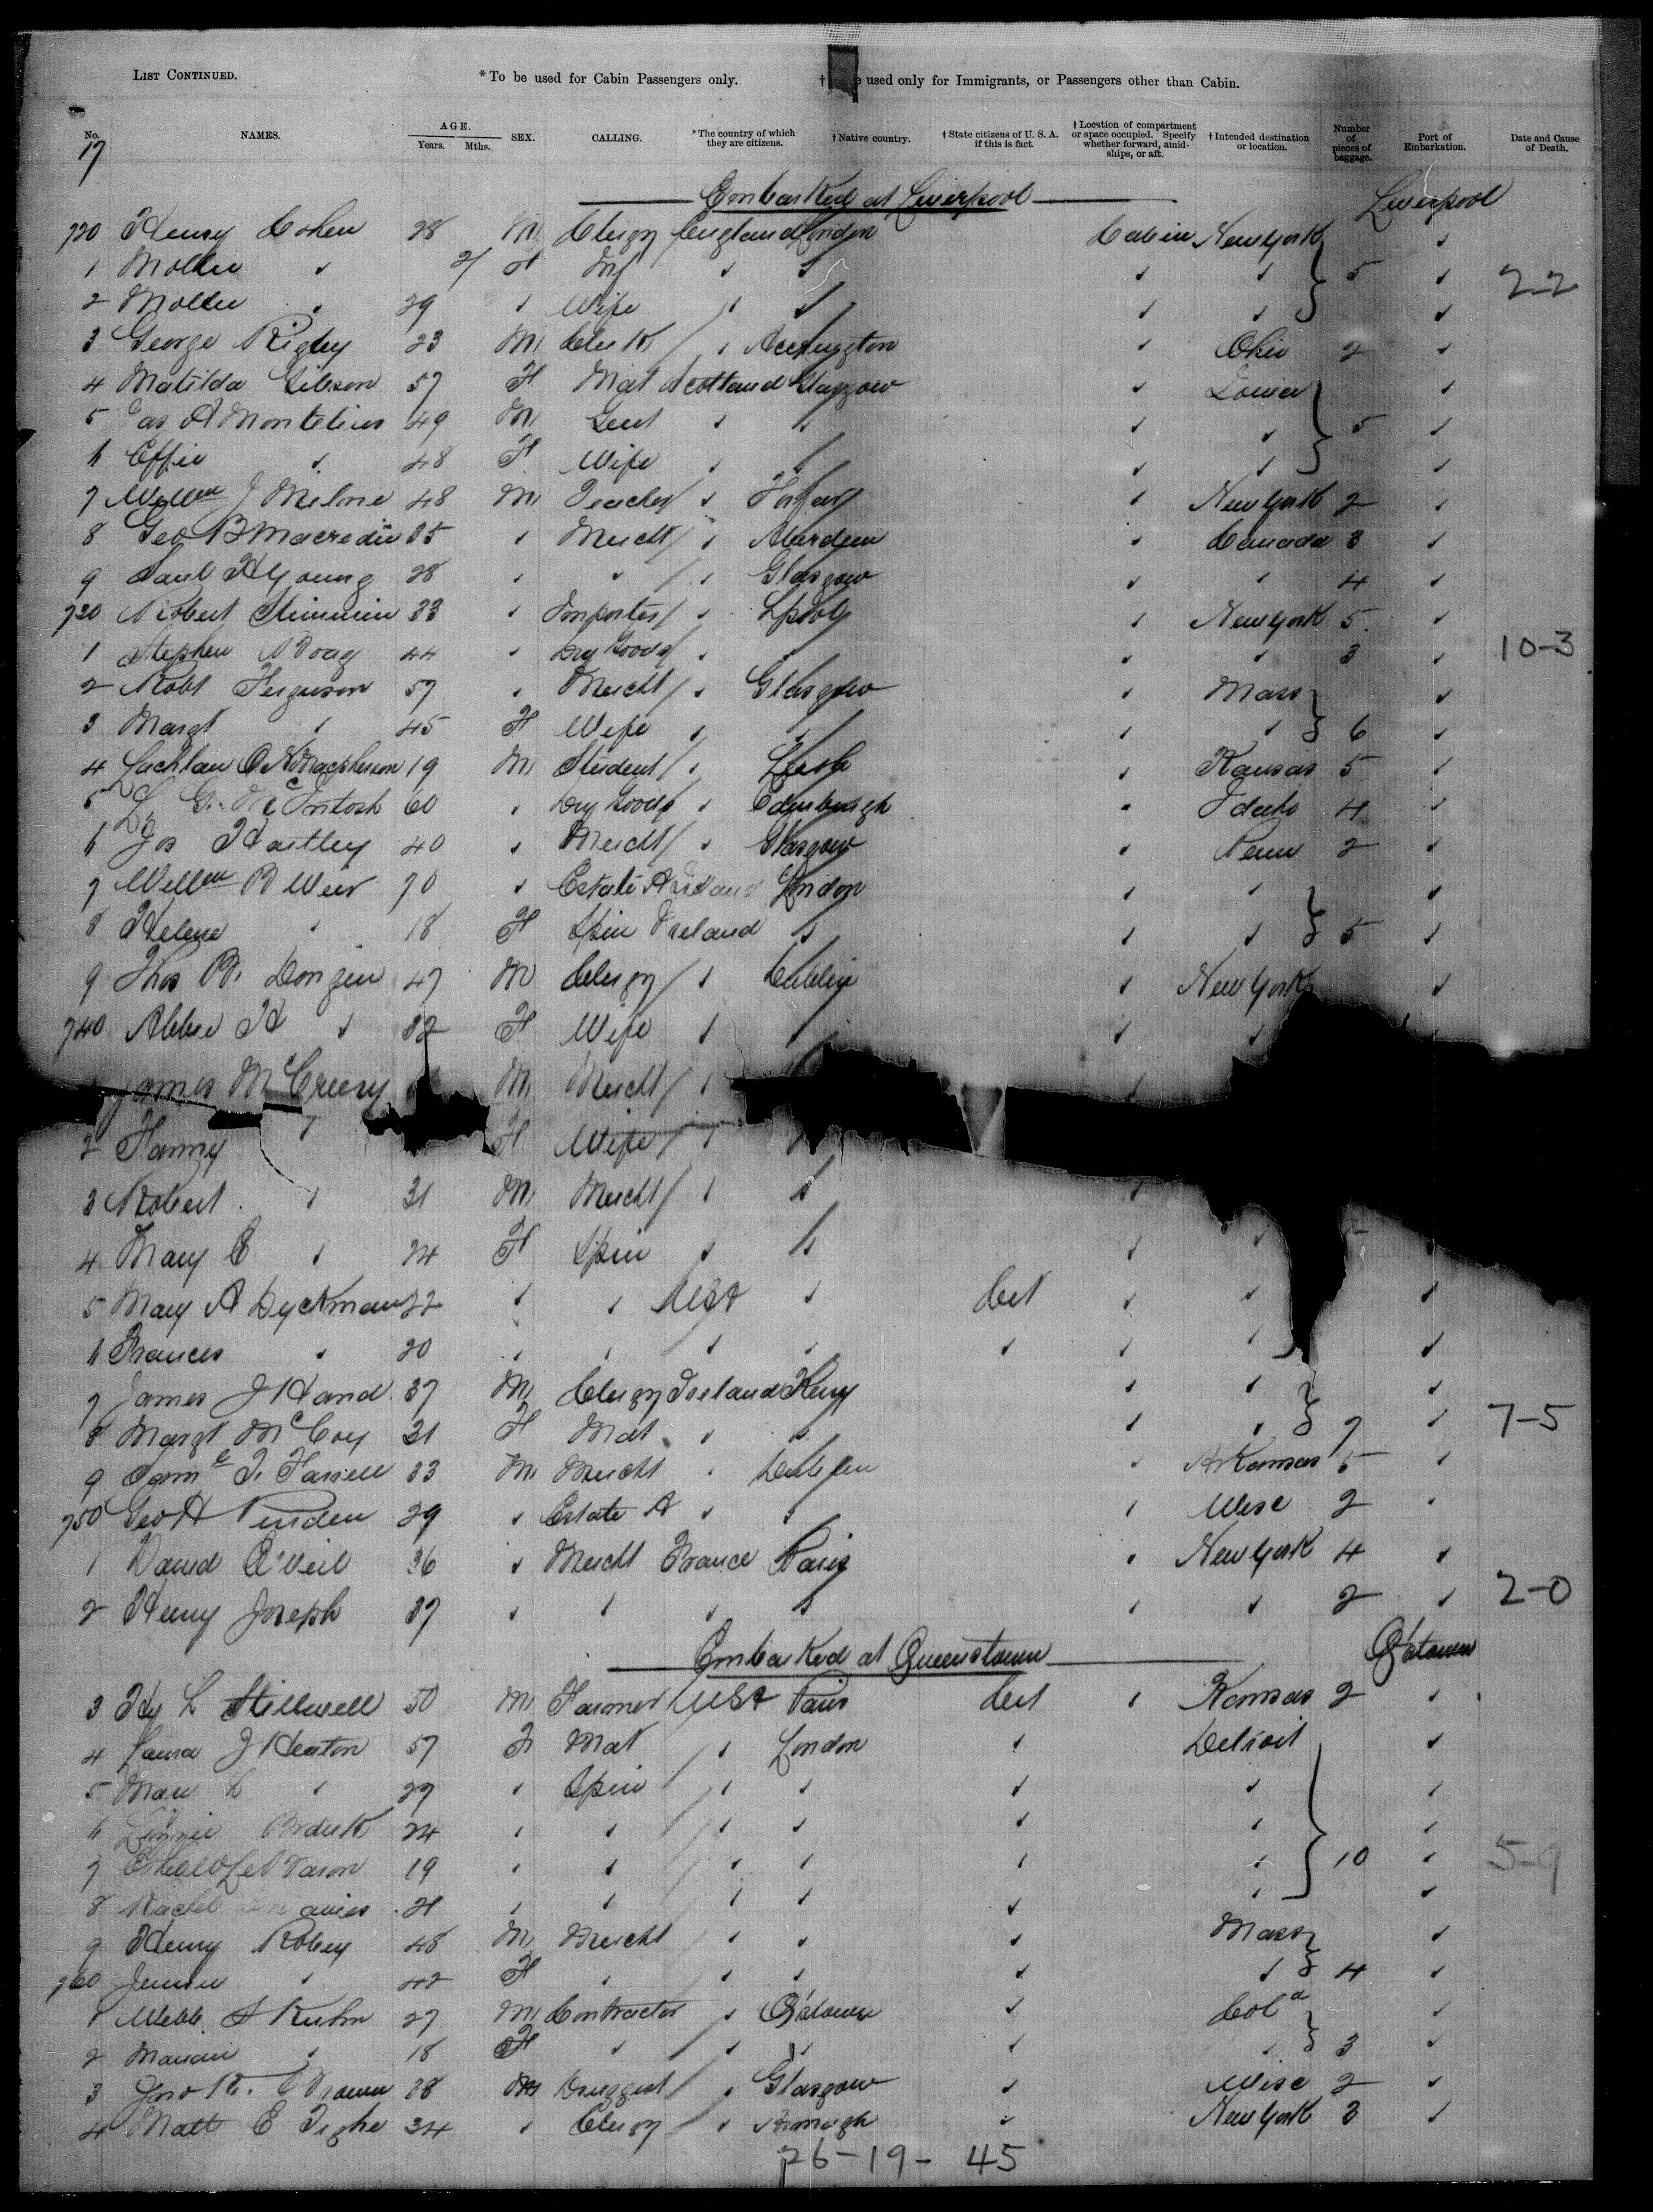 LIST CONTINUED. *To be used for Cabin Passengers only. † used only for Immigrants, or Passengers other than Cabin.
No. NAMES. AGE. Years. Mths. SEX. CALLING. *The country of which they are citizens. †Native country. †State citizens of U. S. A. if this is fact. †Location of compartment or space occupied. Specify whether forward, amidships, or aft. †Intended destination or location. Number of pieces of baggage. Port of Embarkation. Date and Cause of Death.
17
Embarked at Liverpool Liverpool
720 Henry Cohen 28 M Clergy England London Cabin New York ✓
1 ✓ F ✓ ✓ ✓ ✓ 5 ✓ 2-2
2 ✓ 29 ✓ Wife ✓ ✓ ✓ ✓ ✓
3 George Rigby 23 M Clerk ✓ Accrington ✓ Ohio 2 ✓
4 Matilda Gibson 57 F Mat Scotland Glasgow ✓ Iowa ✓
5 Jas A Montelius 49 M Gent ✓ ✓ ✓ ✓ 5 ✓
6 Effie ✓ 48 F Wife ✓ ✓ ✓ ✓ ✓
7 Willm J Melne 48 M Teacher ✓ Forfar ✓ New York 2 ✓
8 Geo B Macredie 35 ✓ Mercht ✓ Aberdeen ✓ Canada 3 ✓
9 Paul H Young 28 ✓ ✓ ✓ Glasgow ✓ ✓ 4 ✓
720 Robert 33 ✓ Importer ✓ Lpool ✓ New York 5 ✓
1 Stephen 44 ✓ Dry Goods ✓ ✓ ✓ ✓ 3 ✓ 10-3
2 Robt Ferguson 57 ✓ Mercht ✓ Glasgow ✓ Mass ✓
3 Margt ✓ 45 F Wife ✓ ✓ ✓ ✓ 6 ✓
4 Lachlan Macpherson 19 M Student ✓ Leith ✓ Kansas 5 ✓
5 G. McIntosh 60 ✓ Dry Goods ✓ Edinburgh ✓ Idaho 4 ✓
6 Jos Hartley 40 ✓ Mercht ✓ Glasgow ✓ Penn 2 ✓
7 Willm B Weir 70 ✓ Estate A London ✓ ✓ ✓
8 Helene ✓ 18 F Spin Ireland ✓ ✓ ✓ 5 ✓
9 Thos B. 47 M Clergy ✓ Dublin ✓ New York ✓
740 Abbie H ✓ 32 F Wife ✓ ✓ ✓ ✓
James McCreery M Mercht ✓
2 Fanny F Wife ✓ ✓
3 Robert ✓ 31 M Mercht ✓ ✓ ✓
4 Mary E ✓ 24 F Spin ✓ ✓ ✓ ✓
5 Mary A Dyckman 22 ✓ ✓ USA ✓ Cit ✓ ✓ ✓
6 Frances ✓ 20 ✓ ✓ ✓ ✓ ✓ ✓ ✓ ✓
7 James J Hand 37 M Clergy Ireland Kerry ✓ ✓ ✓
8 Margt McCoy 31 F Mat ✓ ✓ ✓ ✓ 7 ✓ 7-5
9 33 M Mercht ✓ Dublin ✓ Arkansas 5 ✓
750 Geo A 29 ✓ Estate A ✓ ✓ ✓ Wisc 2 ✓
1 David 36 ✓ Mercht France Paris ✓ New York 4 ✓
2 Henry Joseph 37 ✓ ✓ ✓ ✓ ✓ ✓ 2 ✓ 2-0
Embarked at Queenstown Q'stown
3 Hy L Stillwell 50 M Farmer USA Paris Cit ✓ Kansas 2 ✓
4 Laura J Heaton 57 F Mat ✓ London ✓ Detroit ✓
5 ✓ 29 ✓ Spin ✓ ✓ ✓ ✓ ✓
6 24 ✓ ✓ ✓ ✓ ✓ ✓ ✓
7 19 ✓ ✓ ✓ ✓ ✓ ✓ 10 ✓ 5-9
8 ✓ ✓ ✓ ✓ ✓ ✓ ✓
9 Henry Robey 48 M Mercht ✓ ✓ ✓ Mass ✓
760 Jennie ✓ 42 F ✓ ✓ ✓ ✓ ✓ 4 ✓
1 Webb Kuhn 27 M Contractor ✓ Q'stown ✓ Cola ✓
2 ✓ 18 F ✓ ✓ ✓ ✓ ✓ 3 ✓
3 Jno R. 38 M Druggist ✓ Glasgow ✓ Wisc 2 ✓
4 Matt E Tighe 34 ✓ Clergy ✓ ✓ New York 3 ✓
26-19- 45